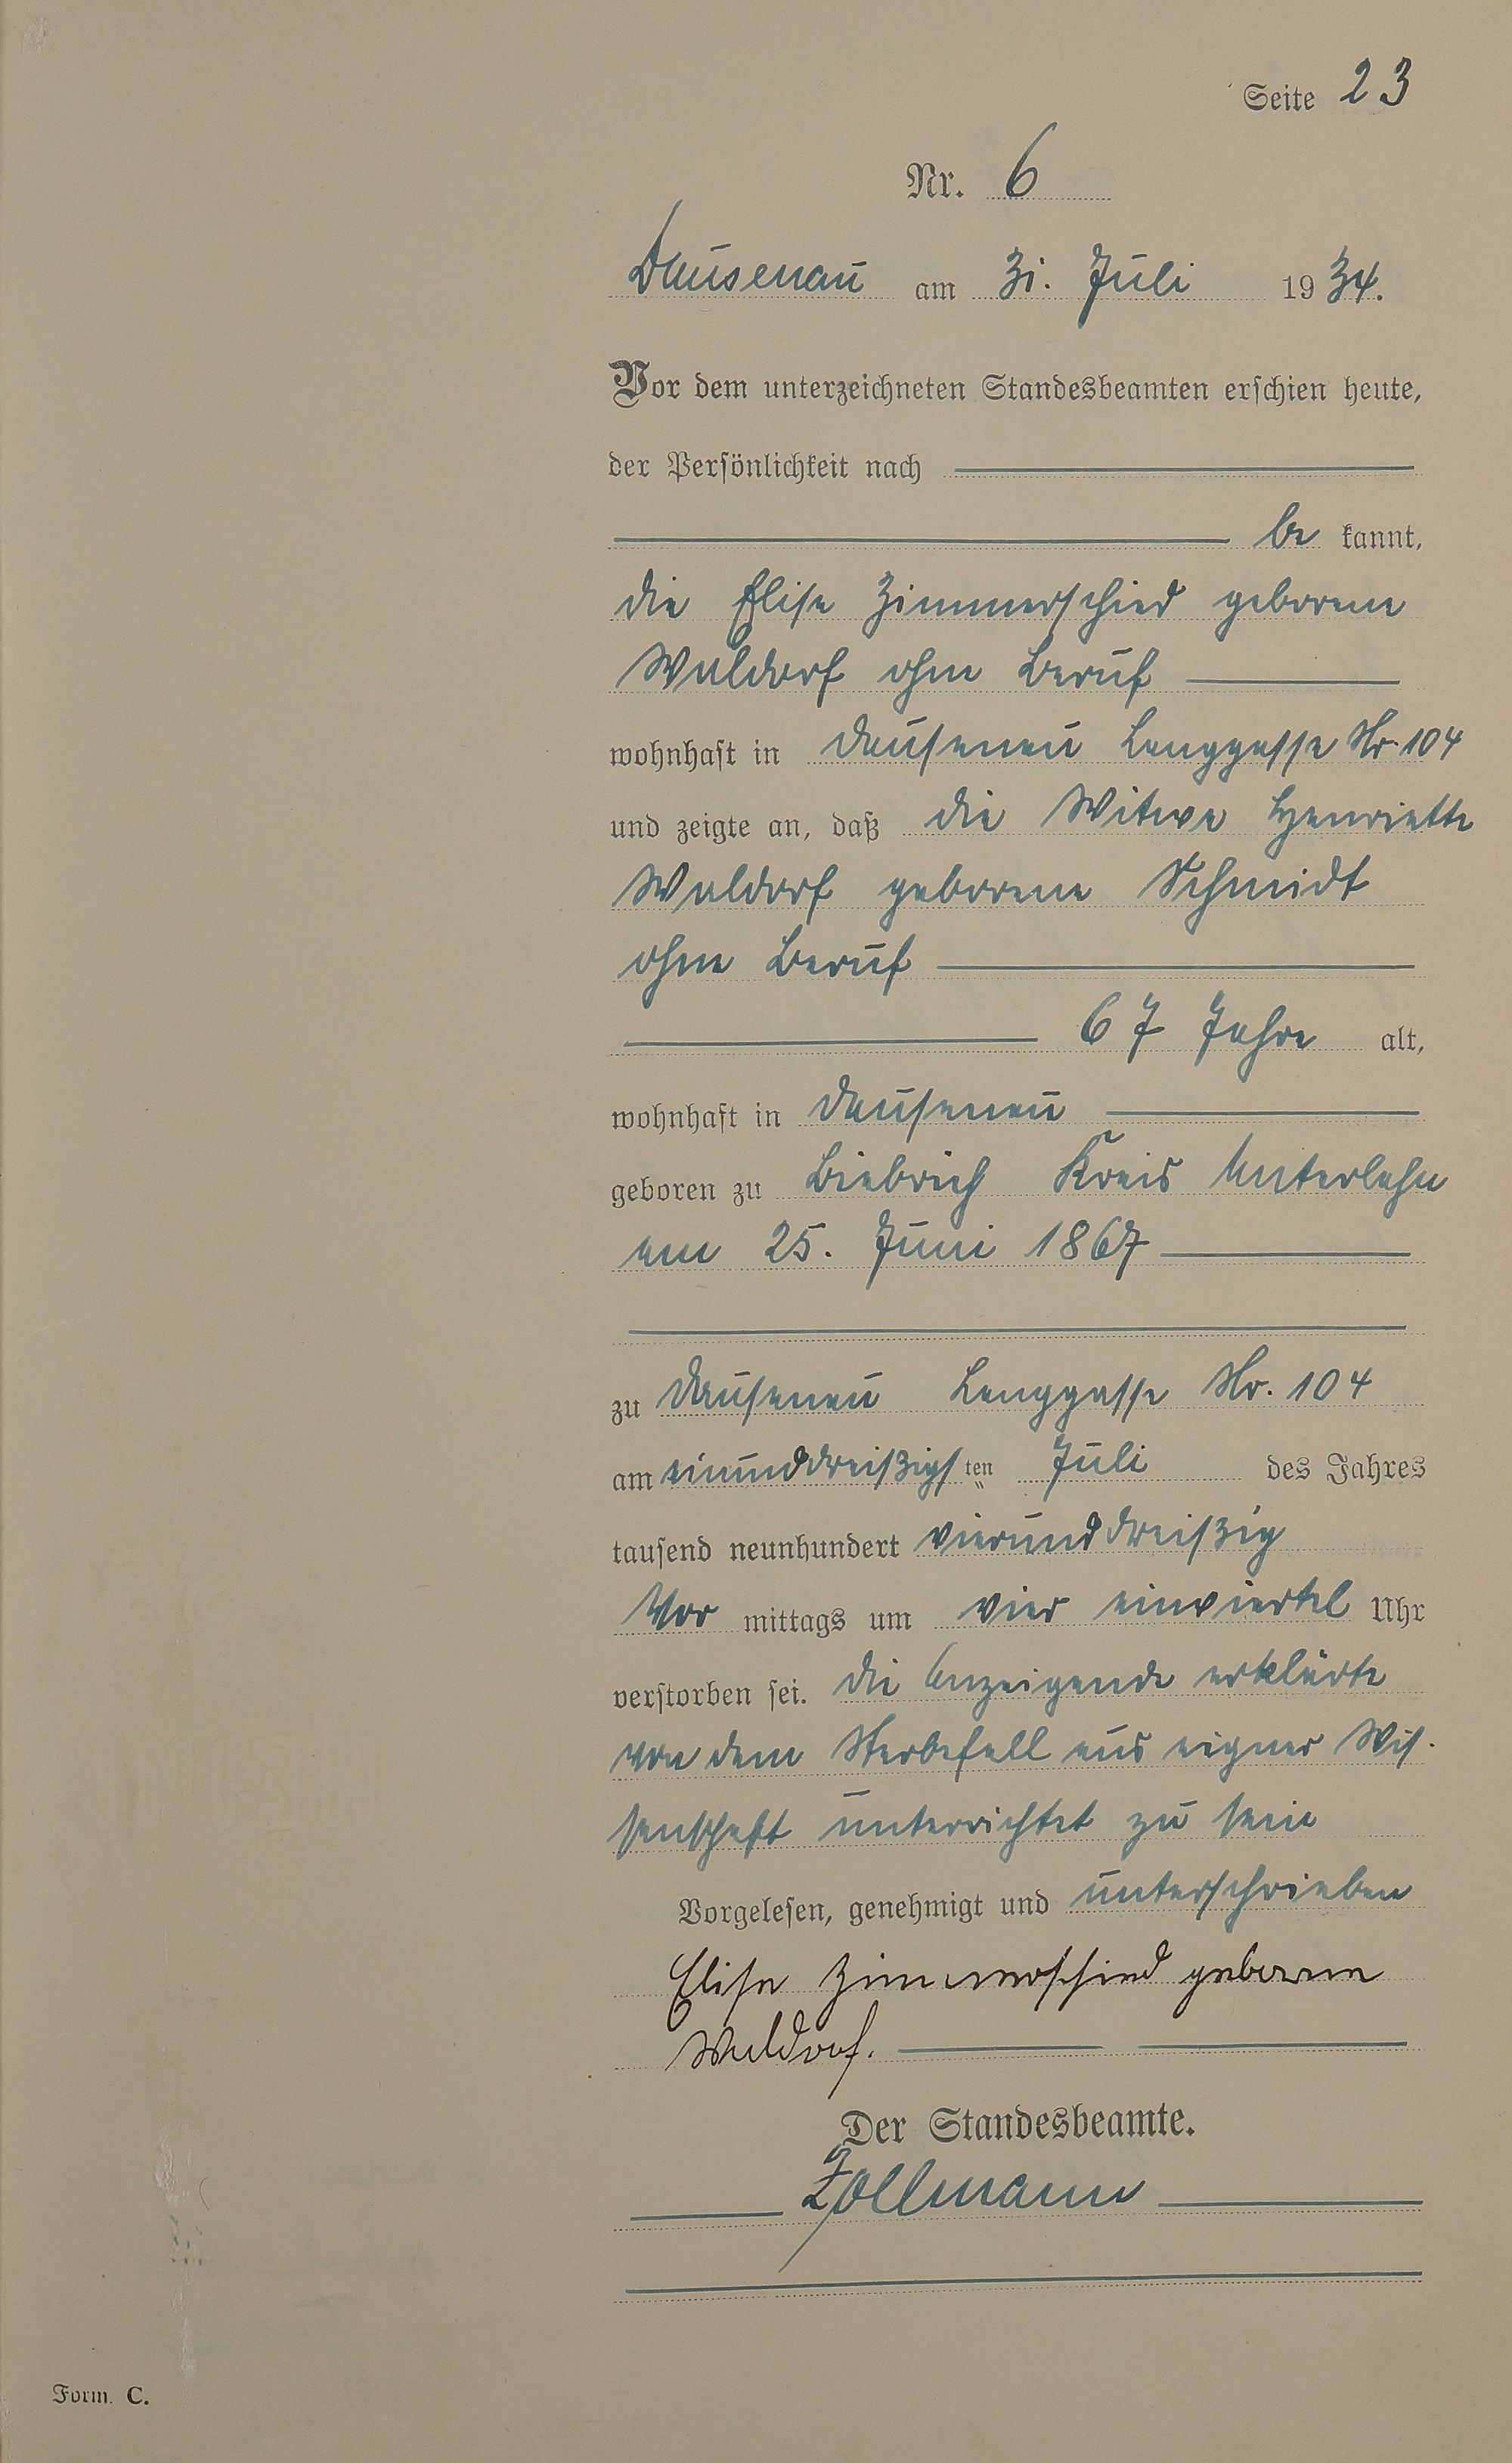 Seite 23
Nr. 6
Dausenau am 31. Juli 1934.
Vor dem unterzeichneten Standesbeamten erschien heute,
der Persönlichkeit nach
bekannt,
die Elise Zimmerschied geborene
Waldorf ohne Beruf
wohnhaft in Dausenau Langgasse Nr. 104
und zeigte an, daß die Witwe Henriette
Waldorf geborene Schmidt
ohne Beruf
67 Jahre alt,
wohnhaft in Dausenau
geboren zu Biebrich Kreis Unterlahn
am 25. Juni 1867
zu Dausenau Langgasse Nr. 104
am einunddreißigsten Juli des Jahres
tausend neunhundert vierunddreißig
Vor mittags um vier einviertel Uhr
verstorben sei. Die Anzeigende erklärte
von dem Sterbefall aus eigner Wis-
senschaft unterrichtet zu sein
Vorgelesen, genehmigt und unterschrieben
Elise Zimmerschied geborene
Waldorf.
Der Standesbeamte.
Zollmann
Form. C.